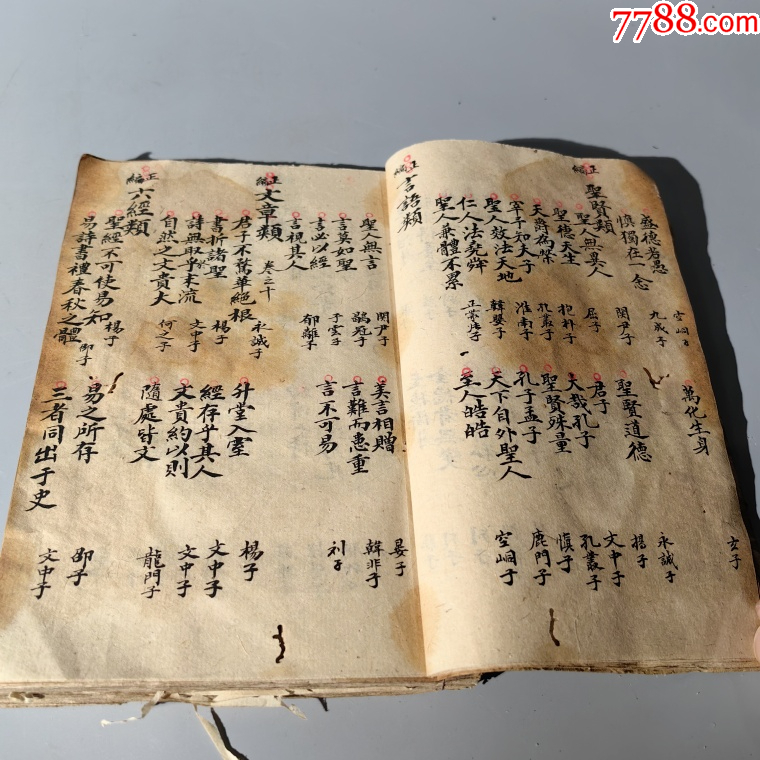 7788.com
盛德若愚 九成子
慎獨在一念 関尹子
正編 聖賢類
聖人無異人 屈子
聖德天生 抱朴子
天爵為榮 孔叢子
宰予知夫子 淮南子
聖人效法天地 韓嬰子
仁人法堯舜
聖人兼體不累
空峒子
萬化生身 玄子
永誠子
聖賢道德 揚子
君子 文中子
大哉孔子 孔叢子
聖賢殊量 慎子
孔子孟子 鹿門子
天下自外聖人 空峒子
至人皓皓
正編 言語類
聖人無言 関尹子
言莫如聖 鶡冠子
言必以經 于雲子
言視其人 郁離子
美言相贈 晏子
言難而患重 韓非子
言不可易 刘子
正編 文章類 卷之十
君子不舊華絕根 永誠子
書折諸聖 楊子
詩無取乎末流 文中子
自然之文貴大 何之子
升堂入室 楊子
經存乎其人 文中子
文貴約以則 文中子
隨處皆文 龍門子
正編 六經類
聖經不可使易知 楊子
易詩書禮春秋之體 邵子
易之所存 邵子
三者同出于史 文中子